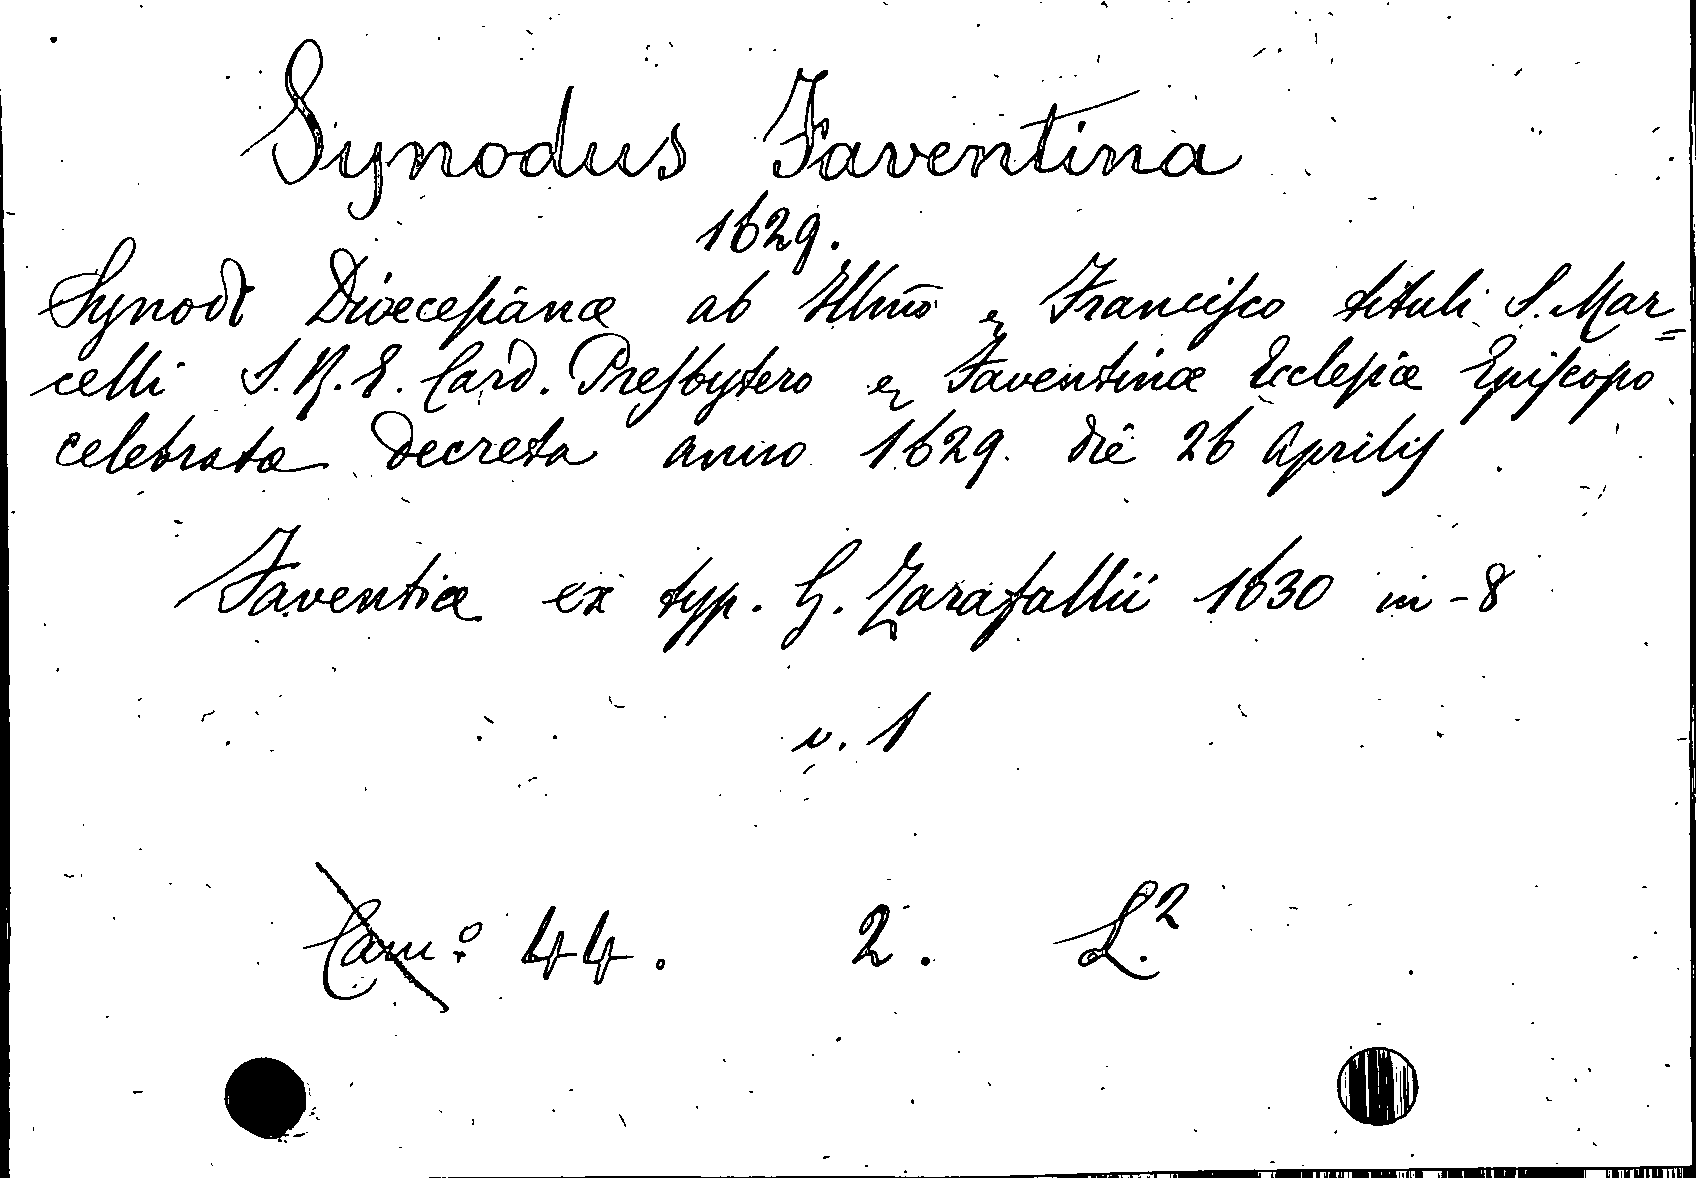 Synodus Faventina
1629.
Synodi Diœcesanæ ab Illmo e Francisco tituli S. Mar=
celli S. R. E. Card. Presbytero e Faventinæ Ecclesiæ Episcopo
celebratæ decreta anno 1629. die 26 Aprilis
Faventiæ ex typ. G. Zarafallii 1630 in-8
v. 1
Cam.o 44. 2. L.2